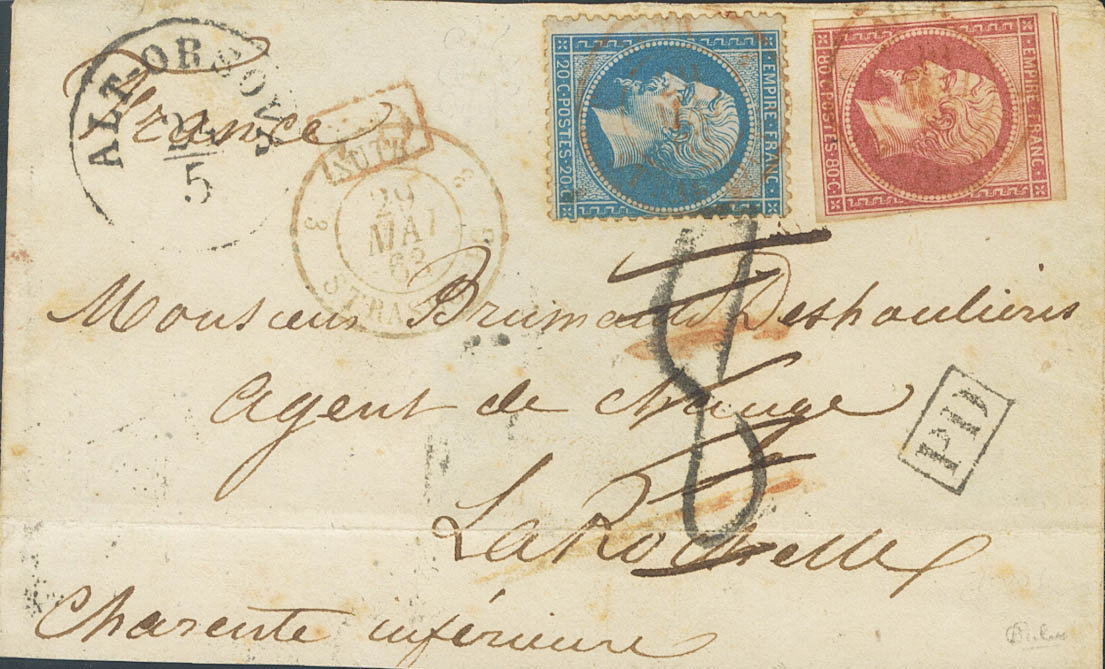 ALT-ORSOVA
5
France
AUTR.
29
MAI
63
3
3
STRASB
20.C POSTES 20.C
EMPIRE FRANC.
80.C POSTES 80.C
EMPIRE FRANC.
8
Monsieur Brimaud Deshoulieris
agent de change
PD
La Rochelle
Charente inférieure